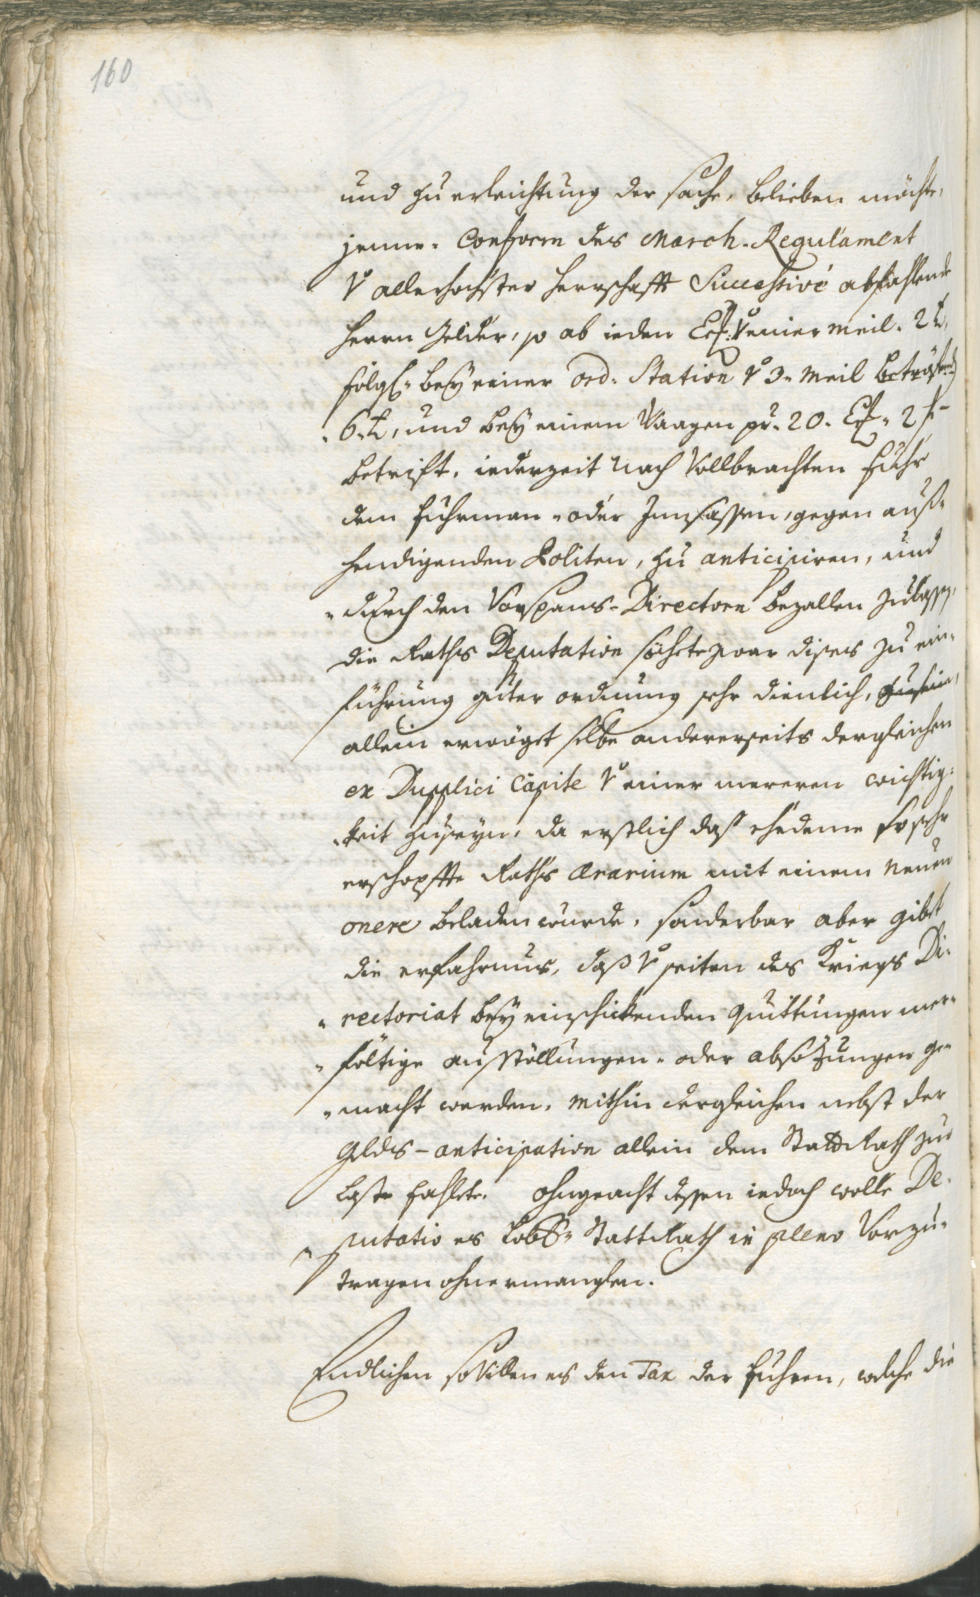 160
und zu erleichtung der sache, belieben möchte,
jenne. Conform des March-Regulament
V allerhochster herrschafft Successivè abfahlende
herrn gelder, so ab ieden Ct. V einer meil. 2 x,
folgl. bey einer ord. Station V 3. meil
6. x, und bey einem Waagen pr. 20. Ct. 2 f
betrift. iederzeit nach Vollbrachten fuhr
dem fuhrman- oder Innsassen, gegen auß-
hendigenden Politen, zu anticipiren, und
durch den Vorspans-Directorn bezallen zulassen,
die Raths Deputation sächete zwar dises zu ein-
führung guter ordnung sehr dienlich,
allein erwöget selbe andererseits dergleichen
ex Dupplici Capite V einer mereren wichtig-
keit zuseyn. da erstlich daß ehedeme so sehr
erschopffte Raths Ærarium mit einem neuen
onere beladen wurde. sonderbar aber gibet
die erfahrnus, daß V seiten des Kriegs Di-
rectoriat bey einschickenden quittungen mer-
föltige ausstöllungen- oder absözungen ge-
macht werden. mithin dergleichen nebst der
gelds-anticipation allein dem StattRath zur
last fahlete. ohngeacht dessen iedoch wolle De-
putatio es Löbl. StattRath in pleno Vorzu-
tragen ohnermanglen.
Endlichen sovillen es den Tax der fuhren, welche die